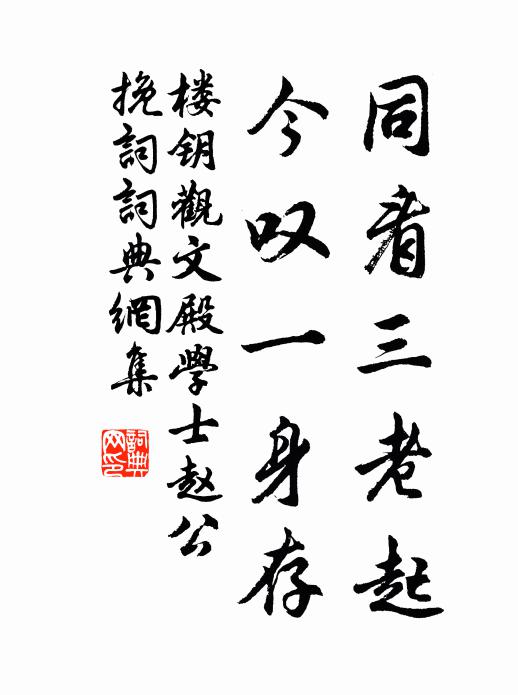 同看三老起
今叹一身存
楼钥觀文殿學士赵公
挽詞詞典網集
詞典
网印